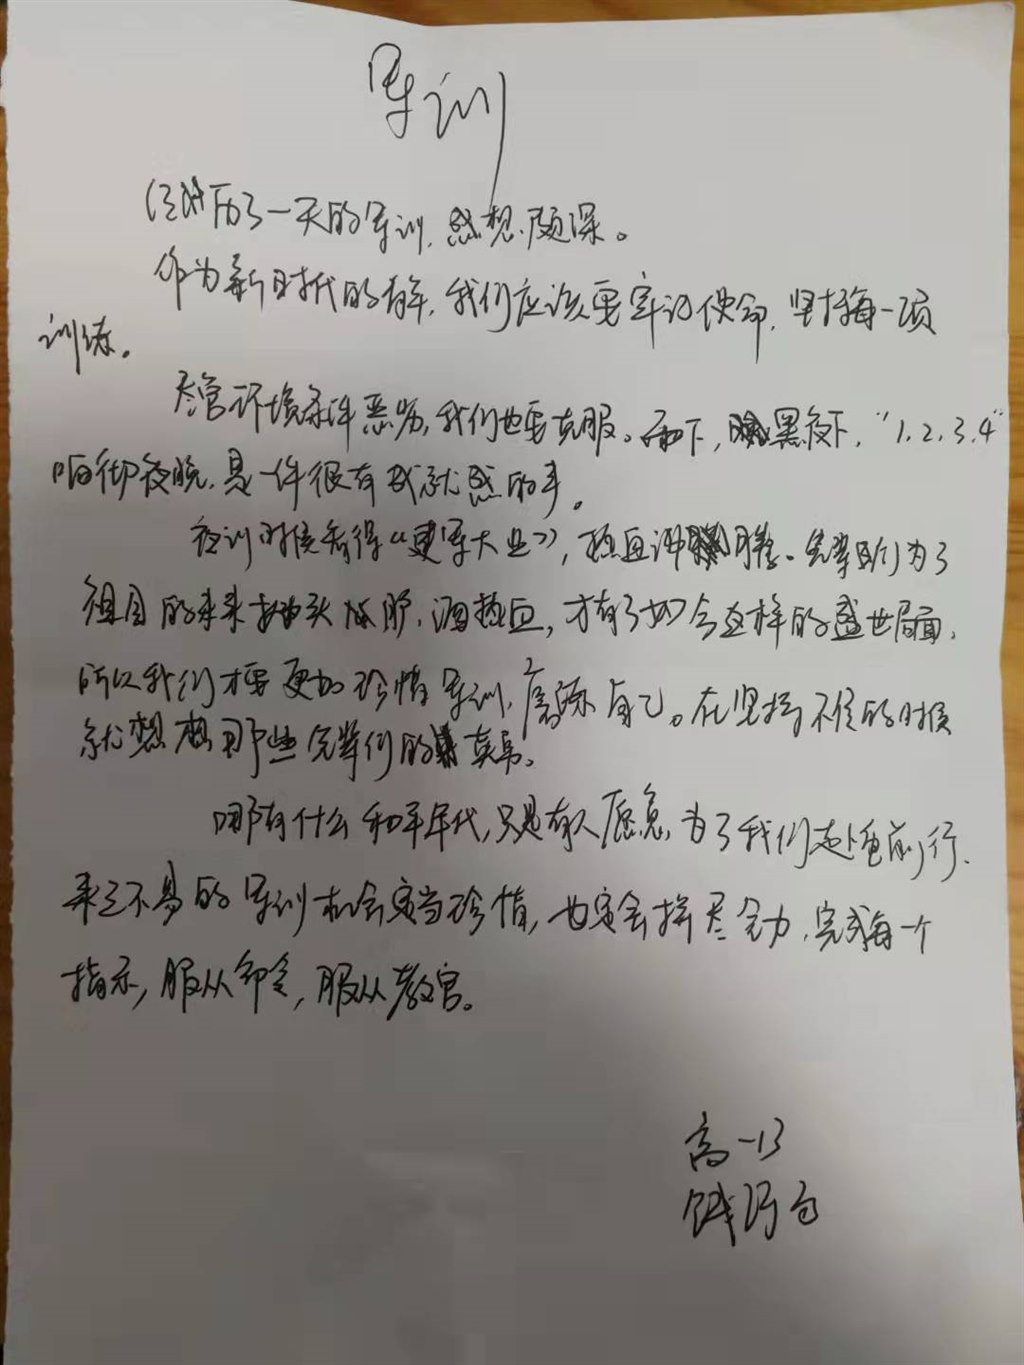 军训
经历了一天的军训,感想颇深。
作为新时代的青年,我们应该要牢记使命,坚持每一项
训练。
尽管环境条件恶劣,我们也要克服。雨下,黑夜下,“1.2.3.4”
响彻夜晚,是一件很有成就感的事。
夜训时候看得《建军大业》,热血沸腾。先辈们为了
祖国的未来抛头颅,洒热血,才有了如今这样的盛世局面,
所以我们才要更加珍惜军训,磨练自己。在坚持不住的时候
就想想那些先辈们的
哪有什么和平年代,只是有人愿意为了我们负重前行、
来之不易的军训机会定当珍惜,也定会拼尽全力,完成每一个
指示,服从命令,服从教官。
高一13